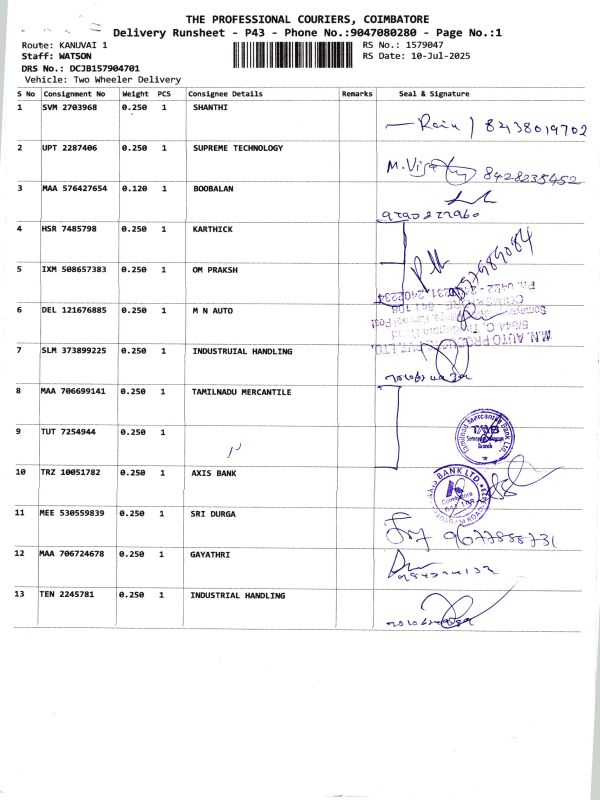 THE PROFESSIONAL COURIERS, COIMBATORE
Delivery Runsheet - P43 - Phone No.:9047080280 - Page No.:1
Route: KANUVAI 1 RS No.: 1579047
Staff: WATSON RS Date: 10-Jul-2025
DRS No.: DCJB157904701
Vehicle: Two Wheeler Delivery
S No Consignment No Weight PCS Consignee Details Remarks Seal & Signature
1 SVM 2703968 0.250 1 SHANTHI
82138019702
2 UPT 2287406 0.250 1 SUPREME TECHNOLOGY
M.Vijay 8428235452
3 MAA 576427654 0.120 1 BOOBALAN
4 HSR 7485798 0.250 1 KARTHICK
5 IXM 508657383 0.250 1 OM PRAKSH
6 DEL 121676885 0.250 1 M N AUTO
7 SLM 373899225 0.250 1 INDUSTRUIAL HANDLING
8 MAA 706699141 0.250 1 TAMILNADU MERCANTILE
Tamilnad Mercantile Bank Ltd.,
TMB
Branch
9 TUT 7254944 0.250 1
10 TRZ 10051782 0.250 1 AXIS BANK
AXIS BANK LTD
Coimbatore
11 MEE 530559839 0.250 1 SRI DURGA
9677888731
12 MAA 706724678 0.250 1 GAYATHRI
13 TEN 2245781 0.250 1 INDUSTRIAL HANDLING